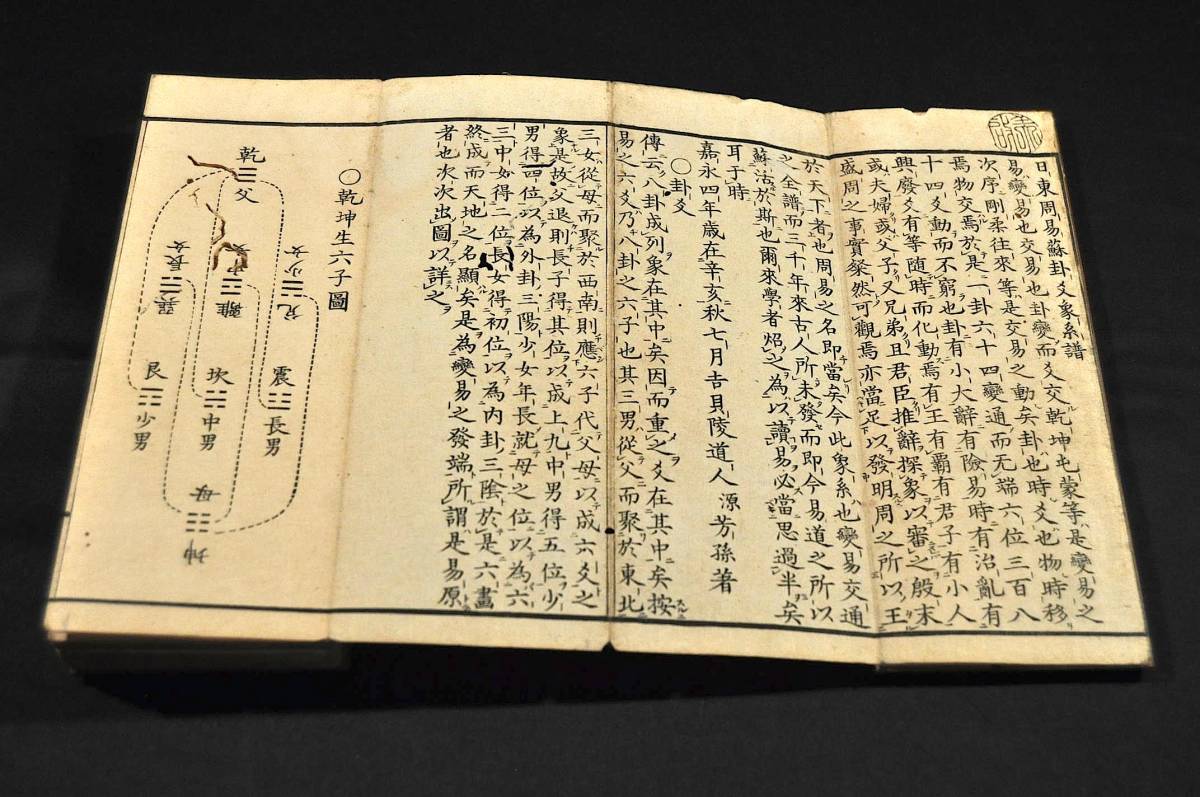 日東周易蘇卦爻象系譜
易變易也交易也卦變而爻交乾坤屯蒙等是變易之
次序剛柔往來等是交易之動矣卦也時爻也物時移
焉物交焉於是一卦六十四變通而无端六位三百八
十四爻動而不窮也卦有小大辭有險易時有治亂有
興廢爻有等隨時而化動焉有王有覇有君子有小人
或夫婦或父子又兄弟且君臣推辭探象以審之殷末
盛周之事實粲然可觀焉亦當足以發明周之所以王
於天下者也周易之名即當矣今此象系也變易交通
之全譜而三千年來古人所未發而即今易道之所以
蘇活於斯也爾來學者炤之為以讀易必當思過半矣
耳于時
嘉永四年歲在辛亥秋七月吉貝陵道人 源芳孫著
〇卦爻
傳云八卦成列象在其中矣因而重之爻在其中矣按
易之六爻乃八卦之六子也其三男從父而聚於東北
三女從母而聚於西南則應六子代父母以成六爻之
象是故父退則長子得其位以成上九中男得五位少
男得四位以為外卦三陽少女年長就母之位以為六
三中女得二位長女得初位以為内卦三陰於是六畫
終成而天地之名顯矣是為變易之發端所謂是易原
者也次次出圖以詳之
〇乾坤生六子圖
乾 ☰ 父
兌 ☱ 少女
離 ☲ 中女
巽 ☴ 長女
震 ☳ 長男
坎 ☵ 中男
艮 ☶ 少男
坤 ☷ 母